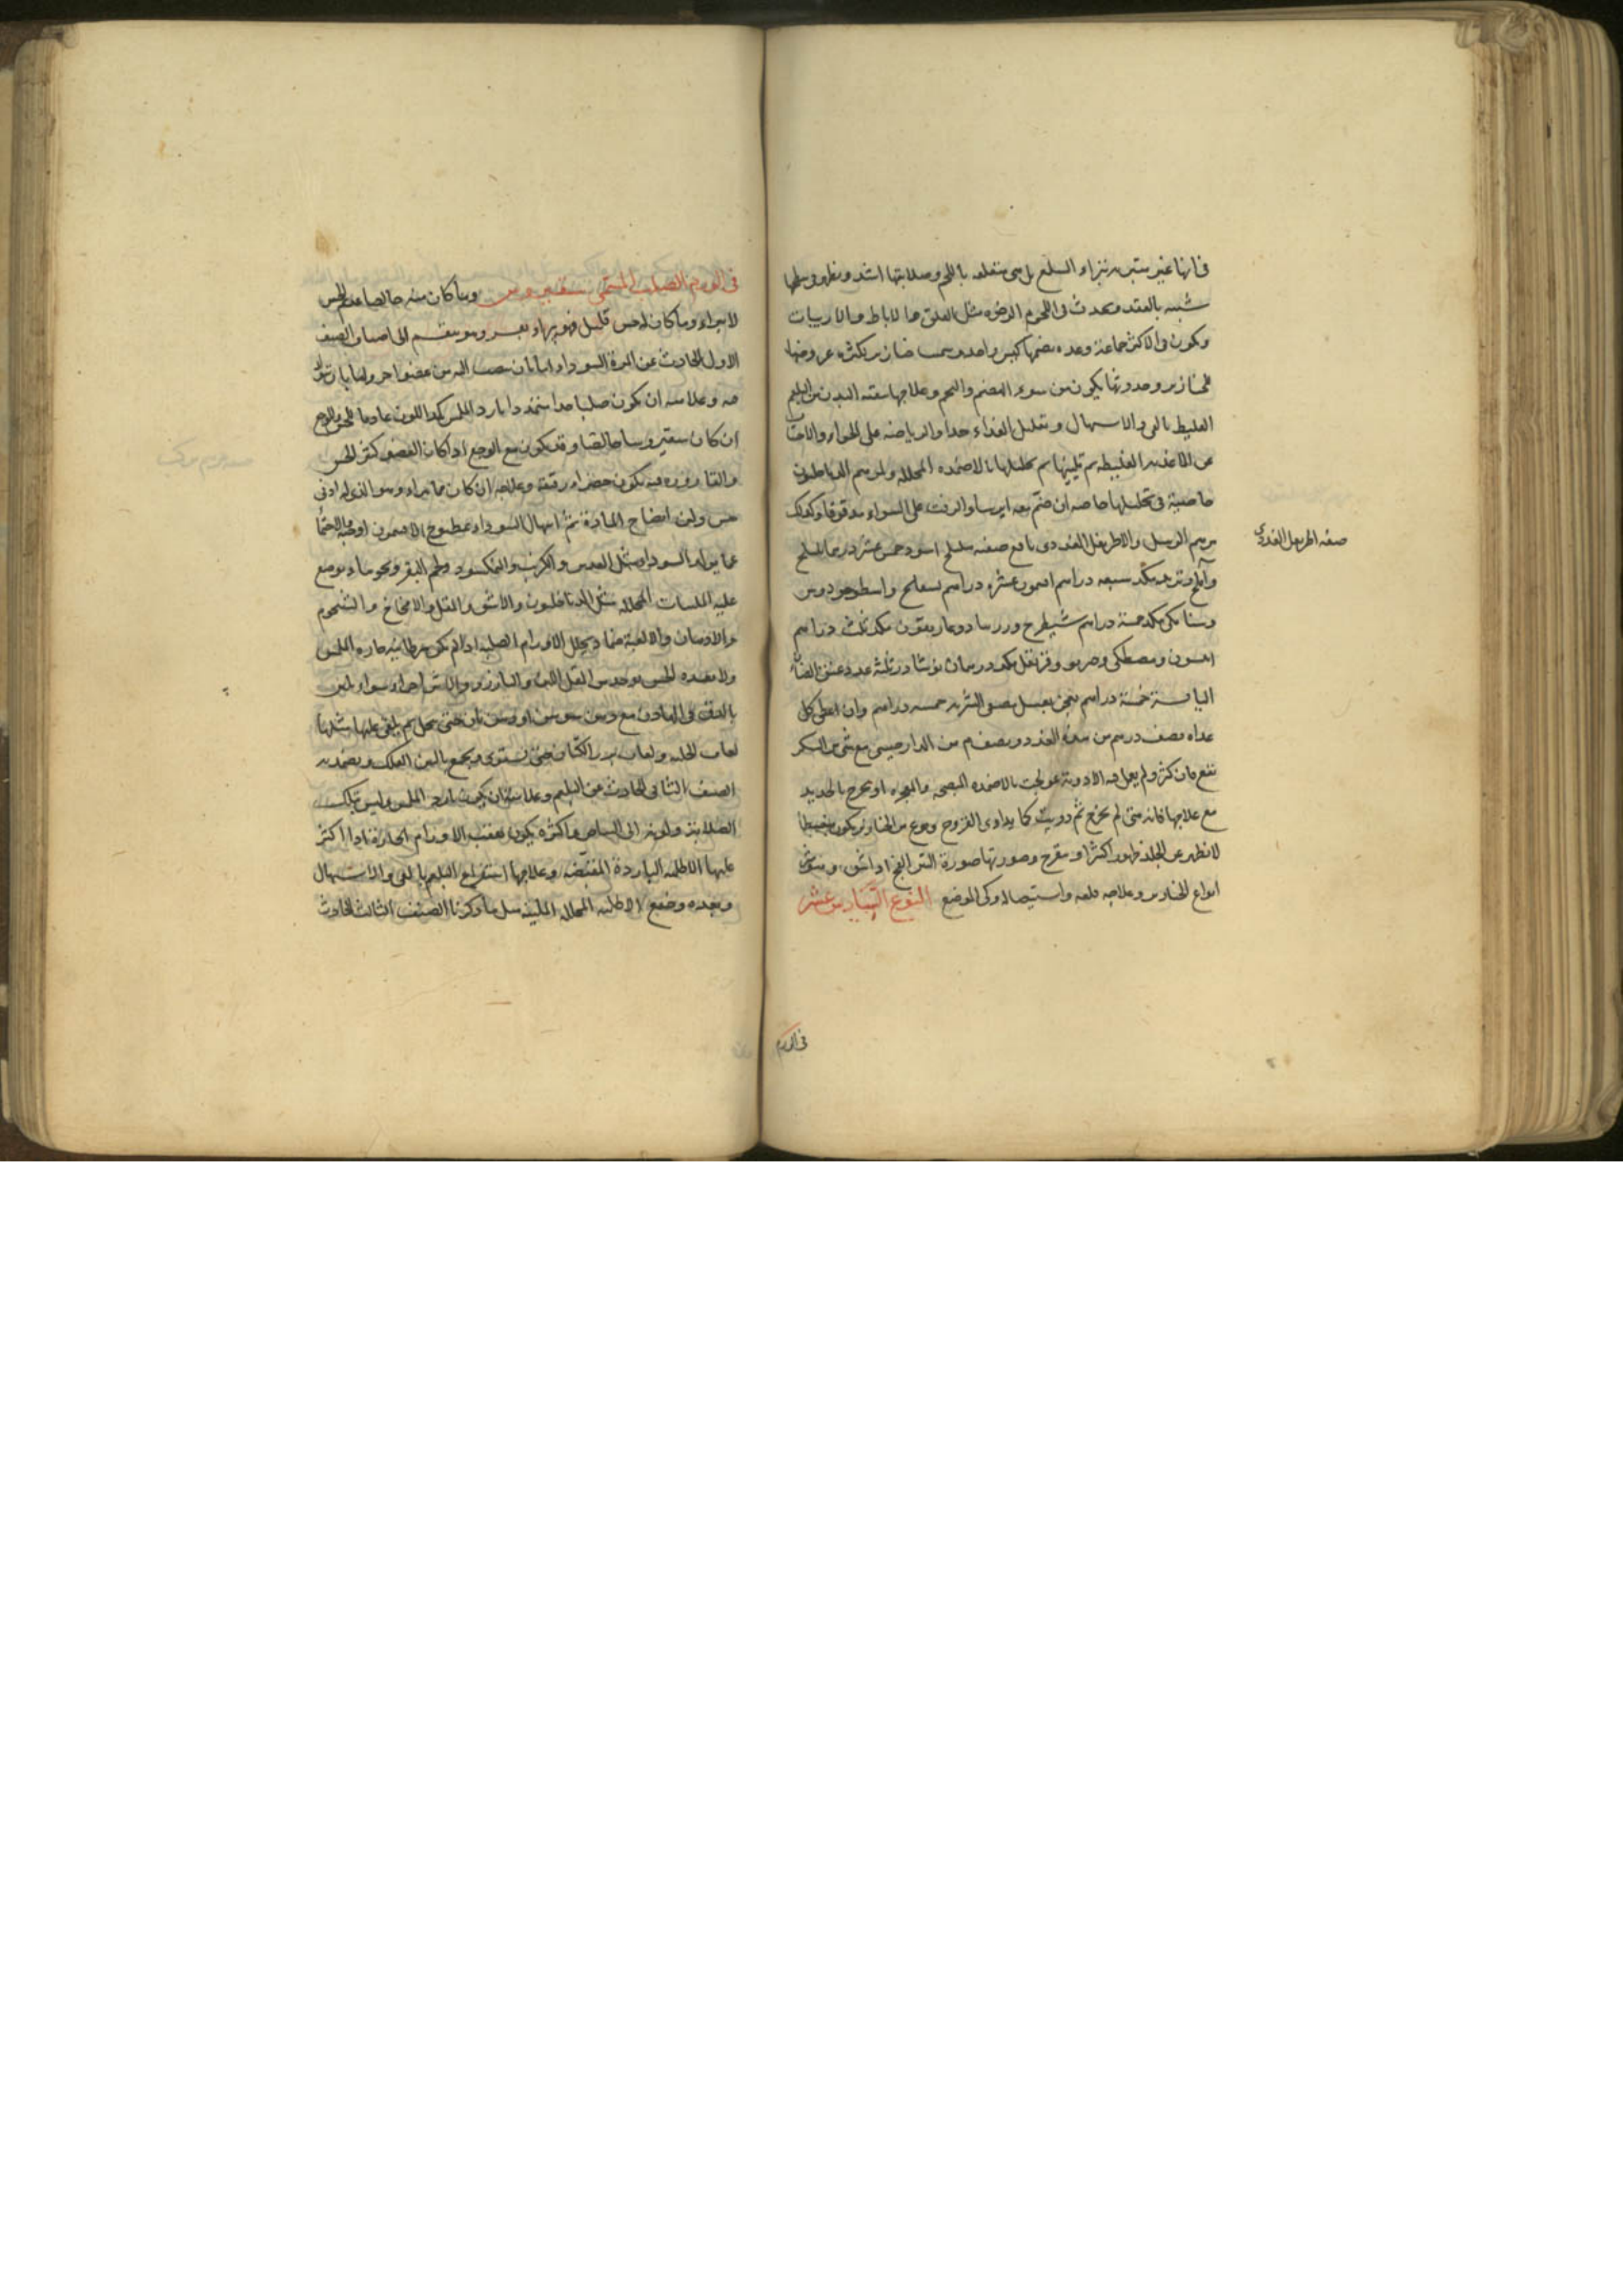 فانها غير متبرئة تبراء السلع بل هي متعلقة باللحم وصلابتها اشد ويظهر وسطها
شبيه بالعقد وتحدث في اللحوم الرخوة مثل العنق والاباط والاربيات
ويكون في الاكثر جماعة وعدة يضمها كيس واحد وسمت خنازير لكثرة عروضها
للخنازير وحدوثها يكون من سوء الهضم والتخم وعلاجها تنقية البدن من البلغم
الغليط بالقي والاسهال وتقليل الغذاء جدا والرياضة على الخواء والاجتناب
عن الاغذية الغليظة ثم تليينها ثم تحليلها بالاضمدة المحللة ولمرهم الدياخلون
خاصية في تحليلها خاصة ان ضم معه ايرسا والزفت على السواء مدقوقا وكذلك
مرهم الرسل والاطريفل الغددي نافع صفته هليلج اسود خمس عشر درهما بليلج
صفة اطريفل الغددي
وآملج وتربد مكد سبعة دراهم افتيمون عشرة دراهم بسفايج واسطوخودوس
وسنا مكي مكد خمسة دراهم شيطرج وزرنباد وغاريقون مكد ثلث دراهم
انيسون ومصطكى وجوزبوا وقرنفل مكد درهمان نوشادر ثلثة غدد عنق الضأن
اليابسة خمسة دراهم يعجن بعسل مصفى الشربة خمسة دراهم وان اعطى كل
غداة نصف درهم من هذه الغدد ونصف م من الدارصيني مع شي من السكر
نفع فان كثر ولم يعمل فيه الادوية عولجت بالاضمدة المنضجة والمفجرة او تخرج بالحديد
مع علاجها فانه متى لم تخرج ثم دوويت كما يداوى القروح ونوع من الخنازير يكون منبسطا
لا تظهر عن الجلد ظهورا كثيرا ويتقرح وصورتها صورة التين الفج اذا شق وهو شر
انواع الخنازير وعلاجه قلعه واستيصاله وكي الموضع النوع السادس عشر
في الورم
في الورم الصلب المسمى سقيروس وما كان منه خالصا عديم الحس
لا يبراء وما كان له حس قليل فهو يبراء بعسر وهو ينقسم الى اصناف الصنف
الاول الحادث عن المرة السوداء اما بان تنصب اليه من عضو اخر واما بان تتولد
فيه وعلامته ان يكون صلبا جدا متمددا بارد الملمس كمد اللون عادما للحس والوجع
ان كان سقيروسا خالصا وقد يكون مع الوجع اذا كان العضو كثير الحس
والقارورة فيه تكون خضراء رقيقة وعلاجه ان كان مما يبراء وهو الذي له ادنى
حس ولين انضاج المادة ثم اسهال السوداء بمطبوخ الافتيمون او حبه والاحتماء
عما يولد السوداء مثل العدس والكرنب والنمكسود ولحم البقر ونحوها ويوضع
عليه الملينات المحللة مثل الدياخليون والاشق والمقل والامخاخ والشحوم
والادهان والالعبة ضماد يحلل الاورام الصلبة اذا لم تكن سرطانية حارة الملمس
ولا مفقدة الحس يوخذ من المقل اللين والبارزد والاشق اجزاء سواء تلين
بالدق في الهاون مع دهن سوسن او دهن بان حتى ينحل ثم يلقى عليها مثلها
لعاب الحلبة ولعاب بزر الكتان حتى يستوي ويجمع بالتين العلك ويضمد به
الصنف الثاني الحادث عن البلغم وعلامته ان يكون بارد الملمس وليس بتلك
الصلابة ولونه الى البياض واكثره يكون بعقب الاورام الحارة اذا اكثر
عليها الاطلية الباردة المقبضة وعلاجها استفراغ البلغم بالقي والاسهال
وبعده وضع الاطلية المحللة الملينة مثل ما ذكرنا الصنف الثالث الحادث